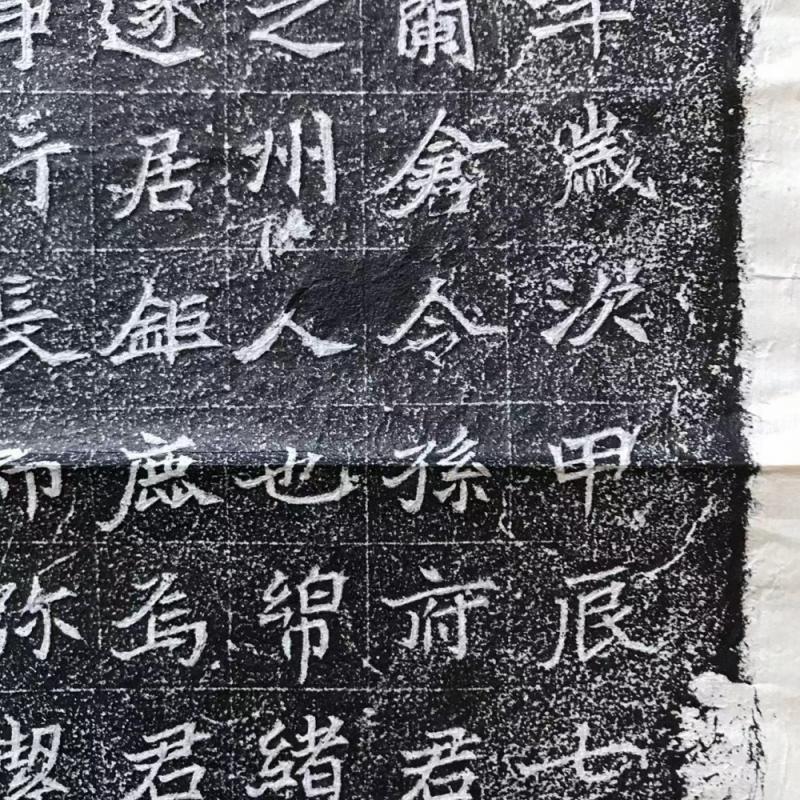 年歲次甲辰七
蘭倉令孫府君
之州人也綿緒
遂居鉅鹿焉君
長弥